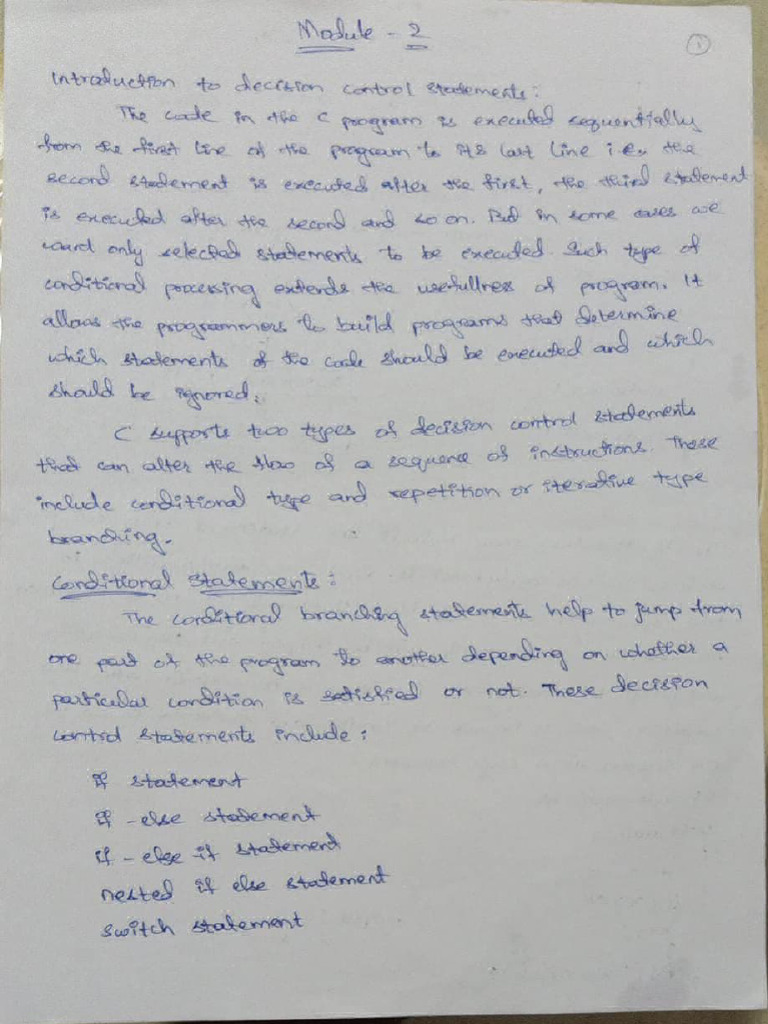 Module - 2
1
Introduction to decision control statements:
The code in the C program is executed sequentially
from the first line of the program to its last line i.e., the
second statement is executed after the first, the third statement
is executed after the second and so on. But in some cases we
want only selected statements to be executed. Such type of
conditional processing extends the usefullness of program. It
allows the programmers to build programs that determine
which statements of the code should be executed and which
should be ignored.
C supports two types of decision control statements
that can alter the flow of a sequence of instructions. These
include conditional type and repetition or iterative type
branching.
Conditional Statements:
The conditional branching statements help to jump from
one part of the program to another depending on whether a
particular condition is satisfied or not. These decision
control statements include:
if statement
if - else statement
if - else if statement
nested if else statement
switch statement